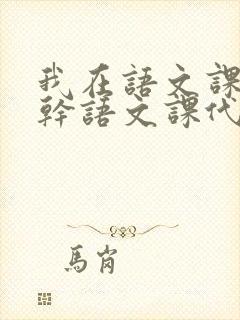 我在語文課
幹語文課代
馬崗